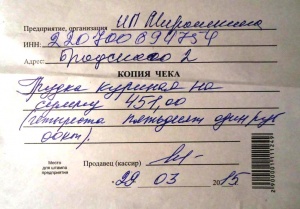 Предприятие, организация ИП Мирошкина
ИНН: 220700694754
Адрес: Бродского 2
КОПИЯ ЧЕКА
Грудка куриная на
сумму 451,00
(четыреста пятьдесят один руб
00кт).
Место
для штампа
предприятия
Продавец (кассир)
29 03 2015